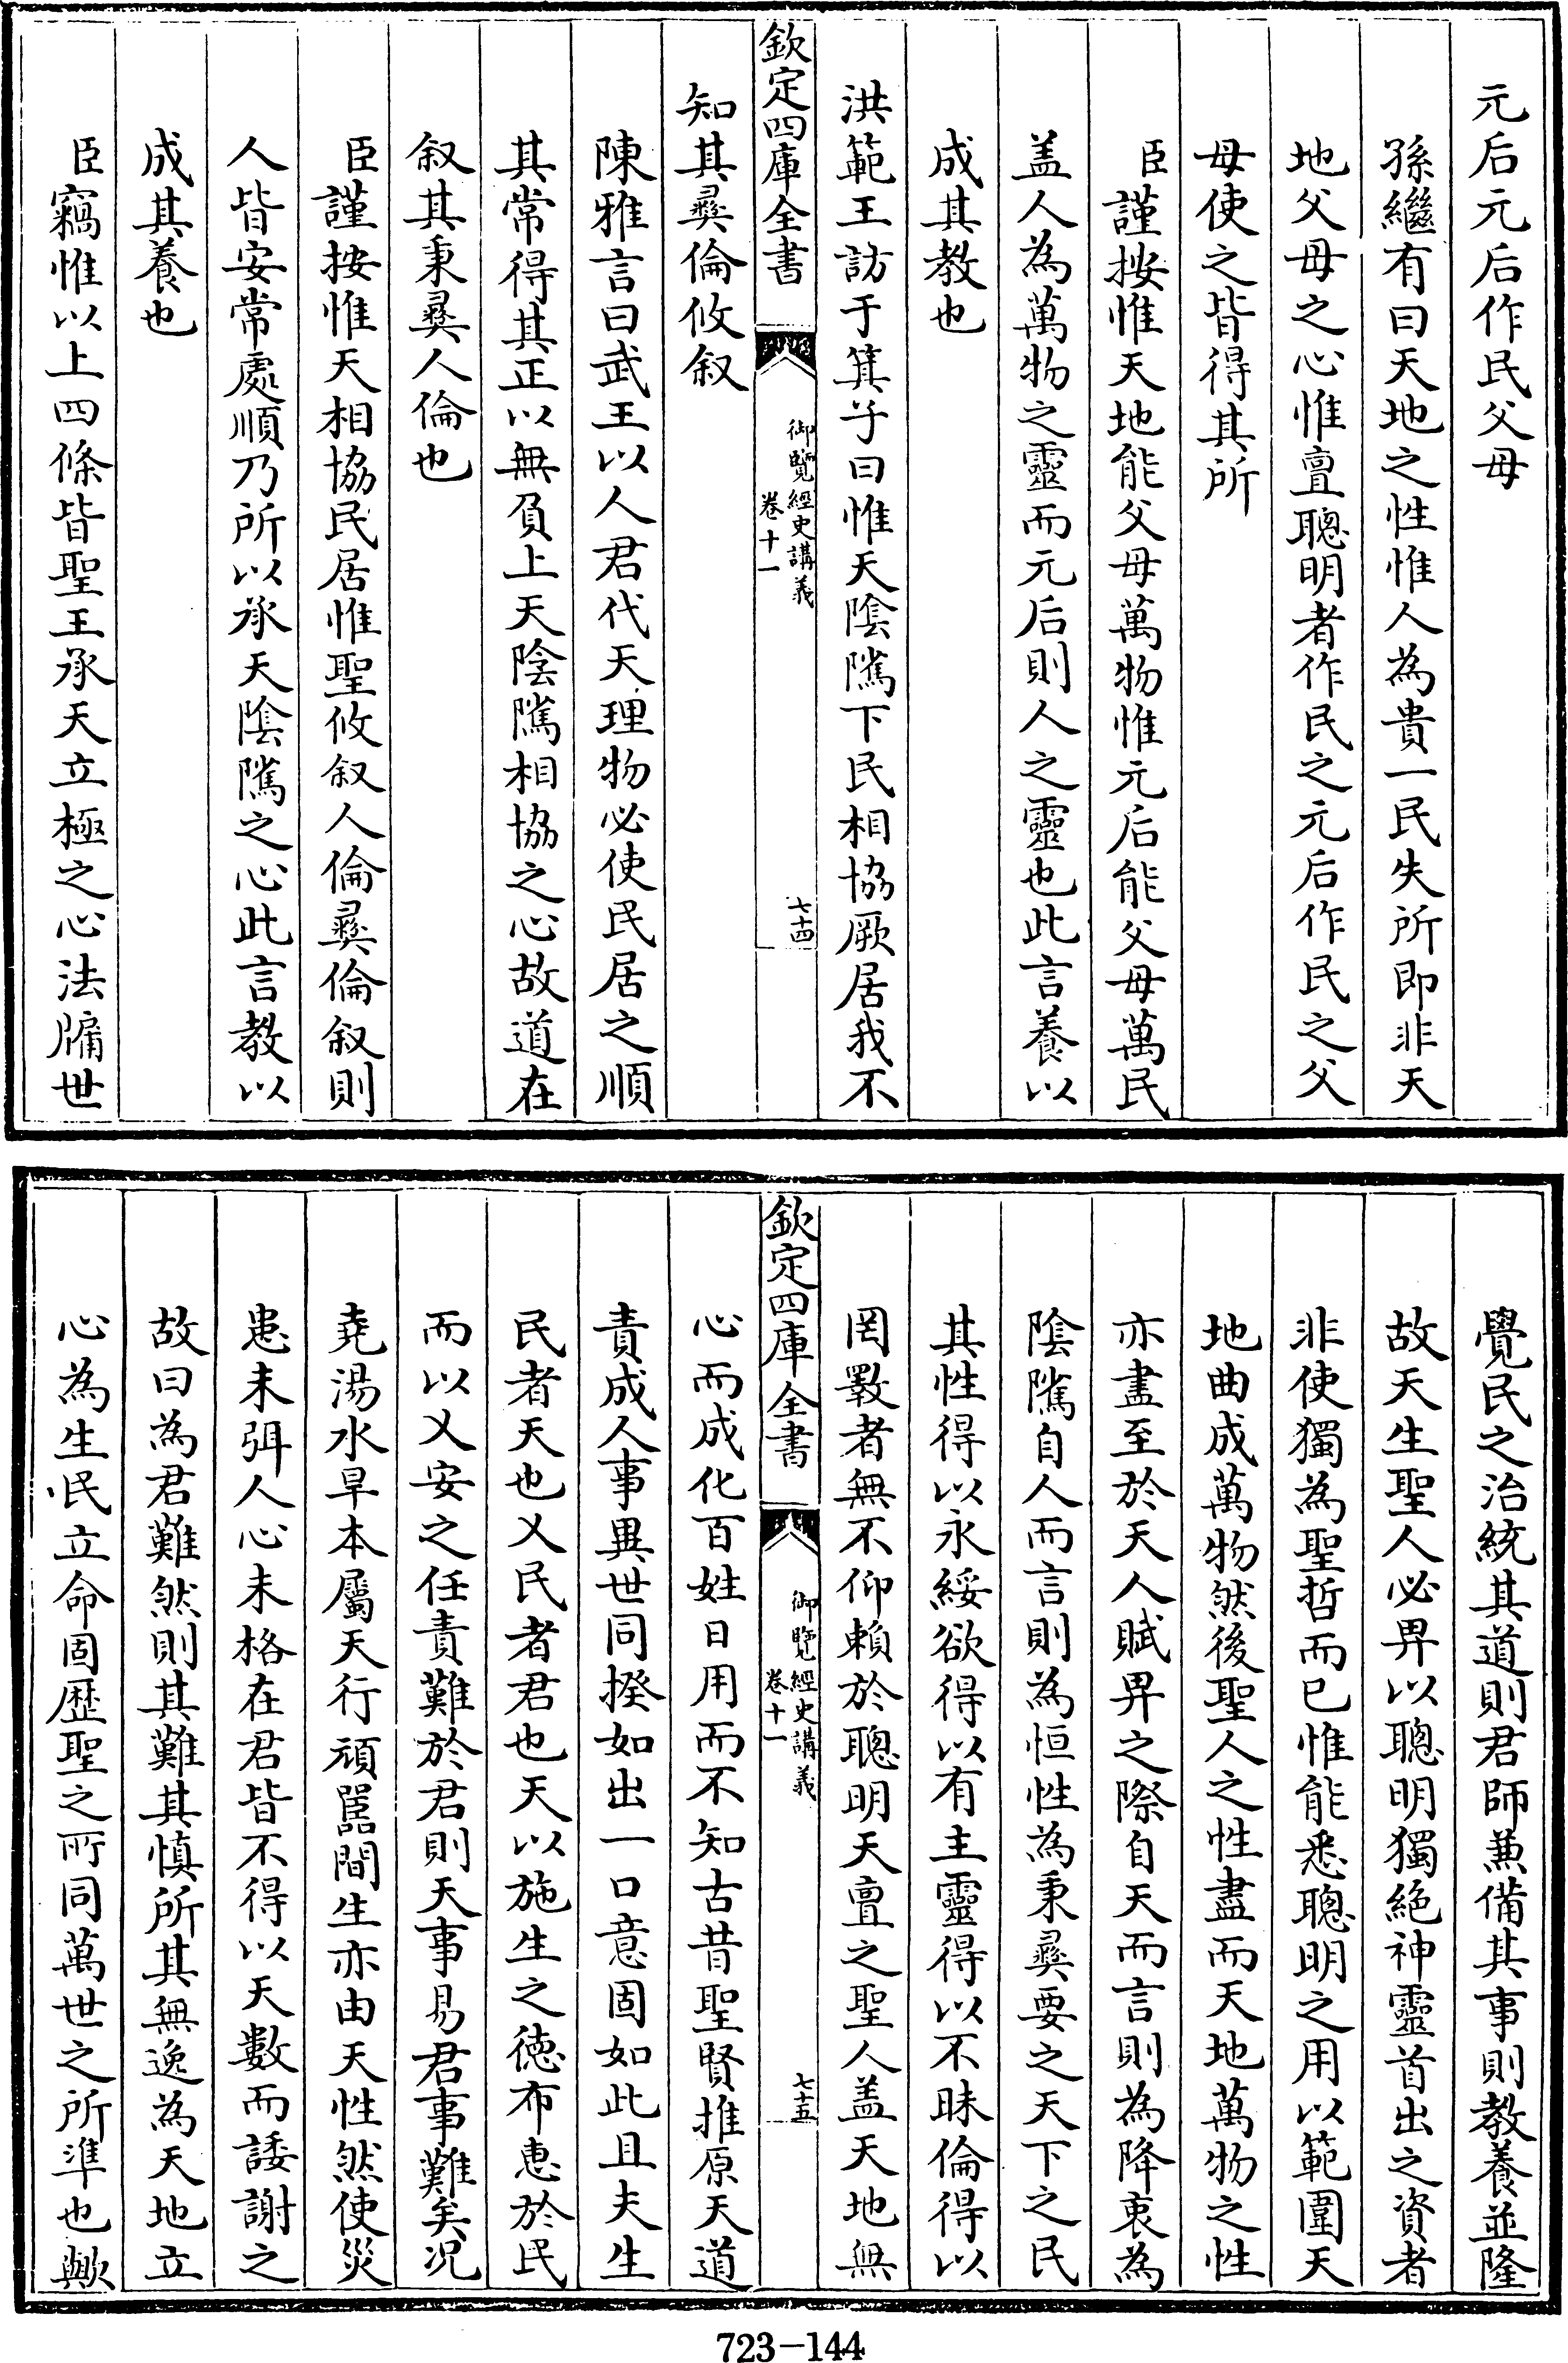 元后元后作民父母
孫繼有曰天地之性惟人為貴一民失所即非天
地父母之心惟亶聰明者作民之元后作民之父
母使之皆得其所
臣謹按惟天地能父母萬物惟元后能父母萬民
盖人為萬物之靈而元后則人之靈也此言養以
成其教也
洪範王訪于箕子曰惟天隂隲下民相協厥居我不
欽定四庫全書
御覽經史講義
卷十一
七十四
知其彛倫攸叙
陳雅言曰武王以人君代天理物必使民居之順
其常得其正以無負上天陰隲相協之心故道在
叙其秉彛人倫也
臣謹按惟天相協民居惟聖攸叙人倫彛倫叙則
人皆安常處順乃所以承天隂隲之心此言教以
成其養也
臣竊惟以上四條皆聖王承天立極之心法牖世
覺民之治統其道則君師兼備其事則教養並隆
故天生聖人必畀以聰明獨絶神靈首出之資者
非使獨為聖哲而已惟能悉聰明之用以範圍天
地曲成萬物然後聖人之性盡而天地萬物之性
亦盡至於天人賦畀之際自天而言則為降衷為
隂隲自人而言則為恒性為秉彛要之天下之民
其性得以永綏欲得以有主靈得以不昧倫得以
罔斁者無不仰賴於聰明天亶之聖人盖天地無
欽定四庫全書
御覽經史講義
卷十一
七十五
心而成化百姓日用而不知古昔聖賢推原天道
責成人事異世同揆如出一口意固如此且夫生
民者天也乂民者君也天以施生之徳布惠於民
而以乂安之任責難於君則天事易君事難矣况
堯湯水旱本屬天行頑嚚間生亦由天性然使災
患未弭人心未格在君皆不得以天數而諉謝之
故曰為君難然則其難其慎所其無逸為天地立
心為生民立命固歴聖之所同萬世之所準也歟
723-144